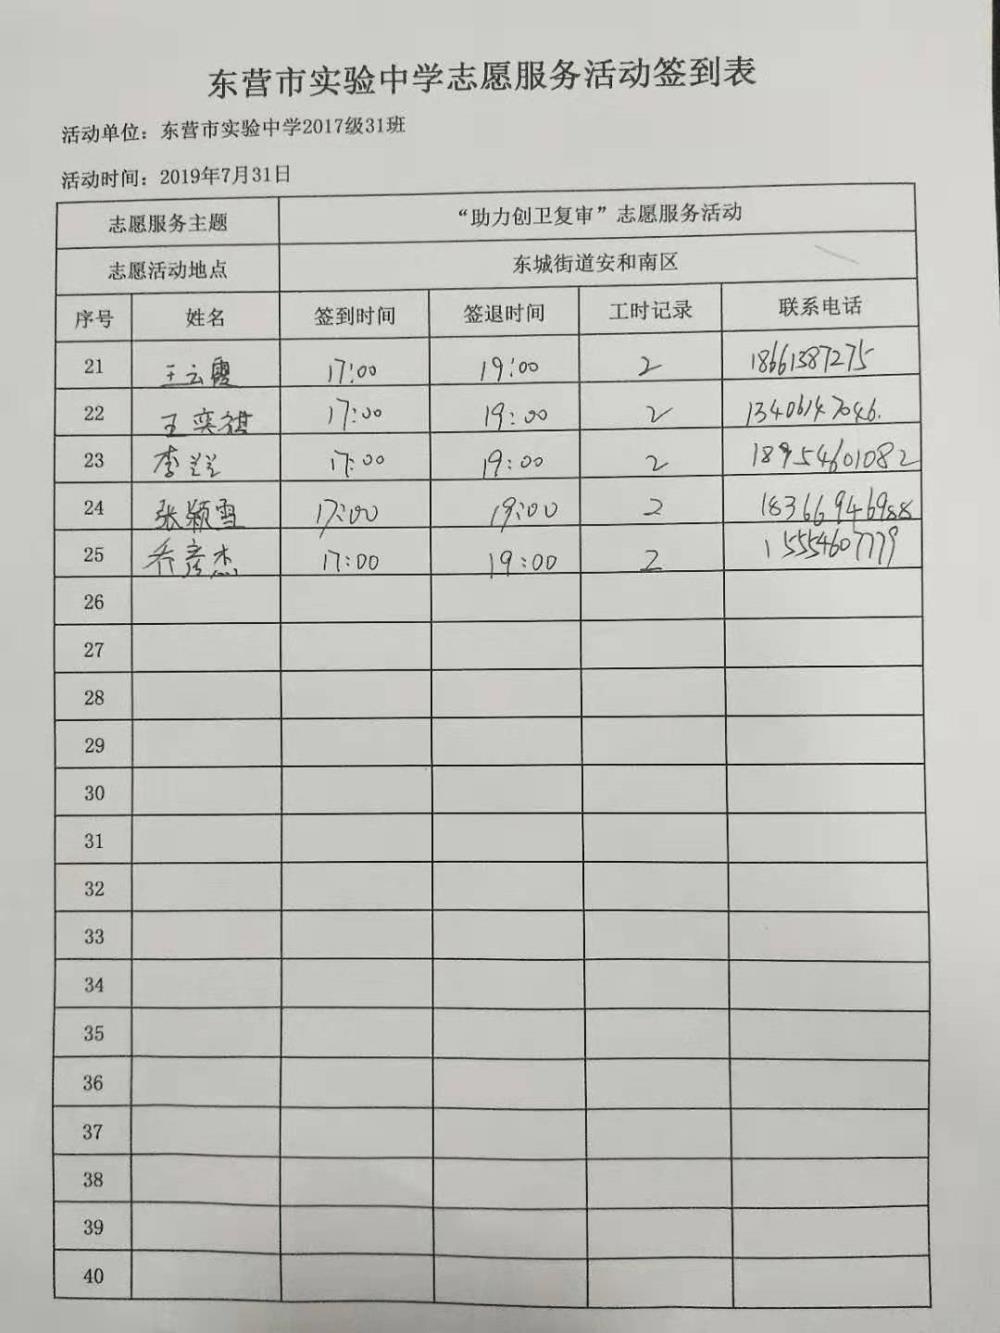 东营市实验中学志愿服务活动签到表
活动单位：东营市实验中学2017级31班
活动时间：2019年7月31日
志愿服务主题 “助力创卫复审”志愿服务活动
志愿活动地点 东城街道安和南区
序号 姓名 签到时间 签退时间 工时记录 联系电话
21 王云霞 17:00 19:00 2 18661387275
22 王奕祺 17:00 19:00 2 13406147046.
23 李 17:00 19:00 2 18954601082
24 张颖雪 17:00 19:00 2 18366946988
25 乔彦杰 17:00 19:00 2 15554607779
26
27
28
29
30
31
32
33
34
35
36
37
38
39
40